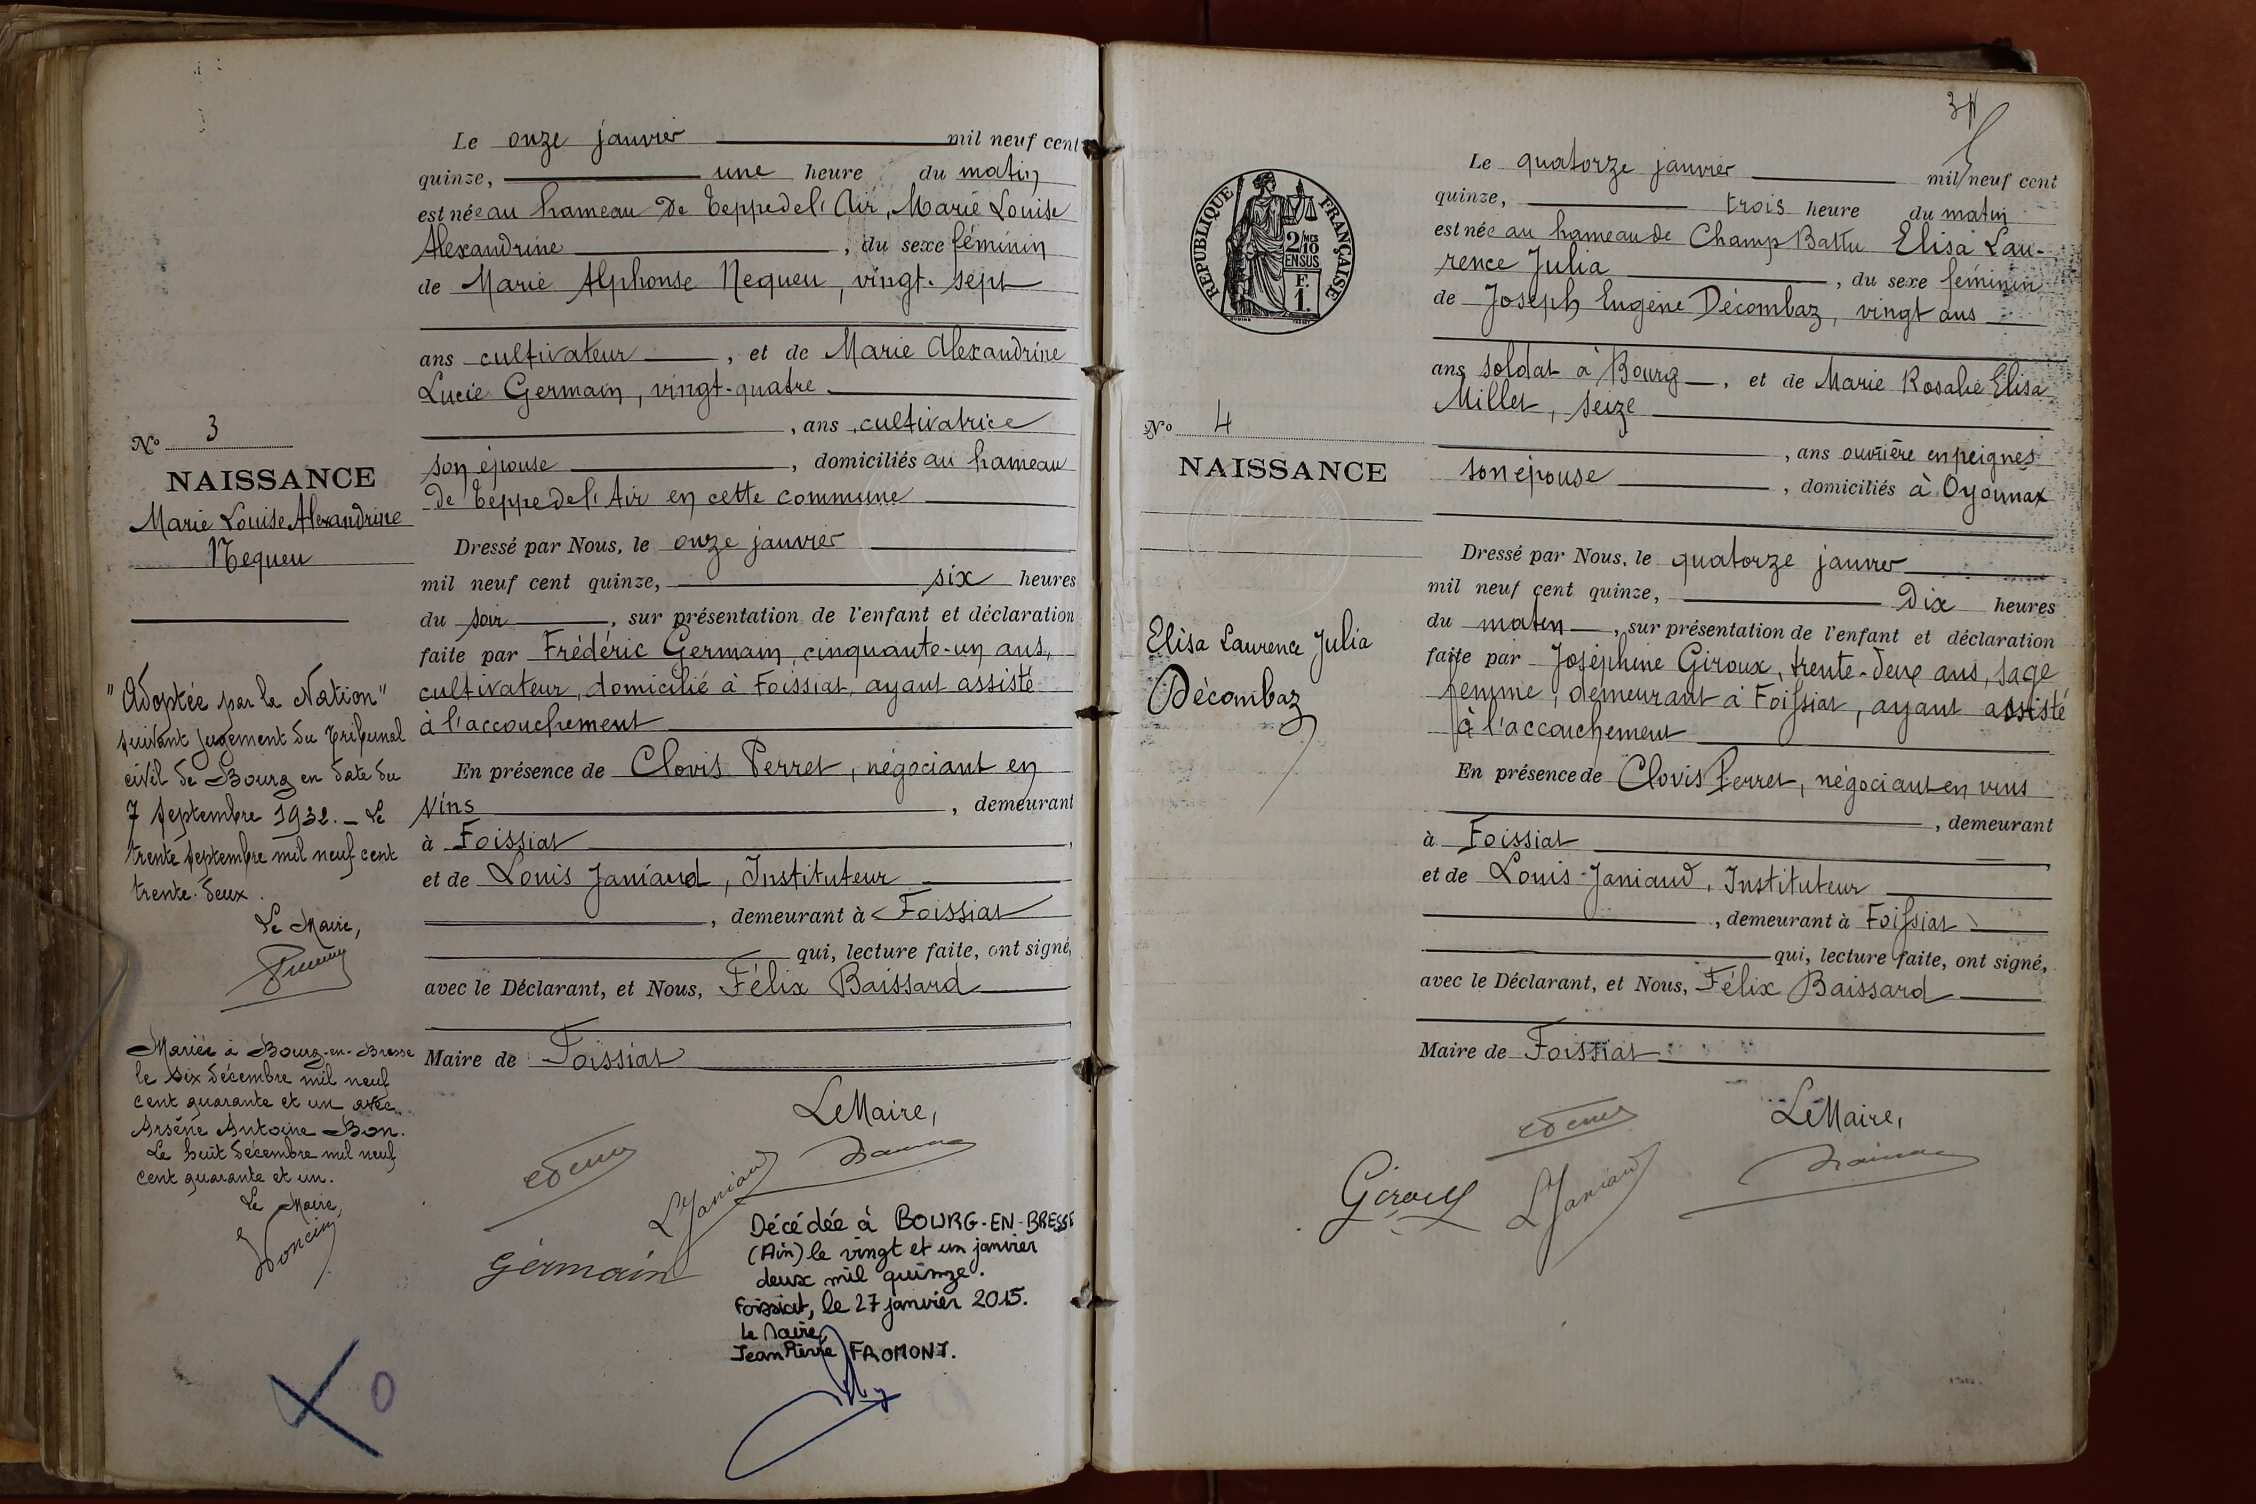 Le onze janvier mil neuf cent
quinze, une heure du matin
est née au hameau de Teppe de l'Air, Marie Louise
Alexandrine, du sexe féminin
de Marie Alphonse Nequeu, vingt-sept
ans cultivateur, et de Marie Alexandrine
Lucie Germain, vingt-quatre
, ans, cultivatrice
son épouse, domiciliés au hameau
de Teppe de l'Air en cette commune
Dressé par Nous, le onze janvier
mil neuf cent quinze, six heures
du soir, sur présentation de l'enfant et déclaration
faite par Frédéric Germain, cinquante-un ans,
cultivateur, domicilié à Foissiat, ayant assisté
à l'accouchement
En présence de Clovis Perret, négociant en
vins, demeurant
à Foissiat,
et de Louis Janiaud, Instituteur
, demeurant à Foissiat
qui, lecture faite, ont signé,
avec le Déclarant, et Nous, Félix Baissard
Maire de Foissiat
Le Maire,
L Janiaud
Germain
Décédée à BOURG-EN-BRESSE
(Ain) le vingt et un janvier
deux mil quinze.
Foissiat, le 27 janvier 2015.
Le Maire,
Jean Pierre FROMONT.
No 3
NAISSANCE
Marie Louise Alexandrine
Nequeu
"Adoptée par la Nation"
suivant jugement du Tribunal
civil de Bourg en date du
7 septembre 1932. - Le
trente septembre mil neuf cent
trente-deux.
Le Maire,
Mariée à Bourg-en-Bresse
le six décembre mil neuf
cent quarante et un avec
Arsène Antoine Bon.
Le huit décembre mil neuf
cent quarante et un.
Le Maire,
0
RÉPUBLIQUE FRANÇAISE
2/10
EN SUS
F.
1.
Le quatorze janvier mil neuf cent
quinze, trois heure du matin
est née au hameau de Champ Battu Elisa Lau-
rence Julia, du sexe féminin
de Joseph Eugène Décombaz, vingt ans
ans soldat à Bourg, et de Marie Rosalie Elisa
Millet, seize
, ans ouvrière en peignes
son épouse, domiciliés à Oyonnax
Dressé par Nous, le quatorze janvier
mil neuf cent quinze, dix heures
du matin, sur présentation de l'enfant et déclaration
faite par Joséphine Giroux, trente-deux ans, sage
femme, demeurant à Foissiat, ayant assisté
à l'accouchement
En présence de Clovis Perret, négociant en vins
, demeurant
à Foissiat
et de Louis Janiaud, Instituteur
, demeurant à Foissiat
qui, lecture faite, ont signé,
avec le Déclarant, et Nous, Félix Baissard
Maire de Foissiat
Le Maire,
Giroux
L Janiaud
No 4
NAISSANCE
Elisa Laurence Julia
Décombaz